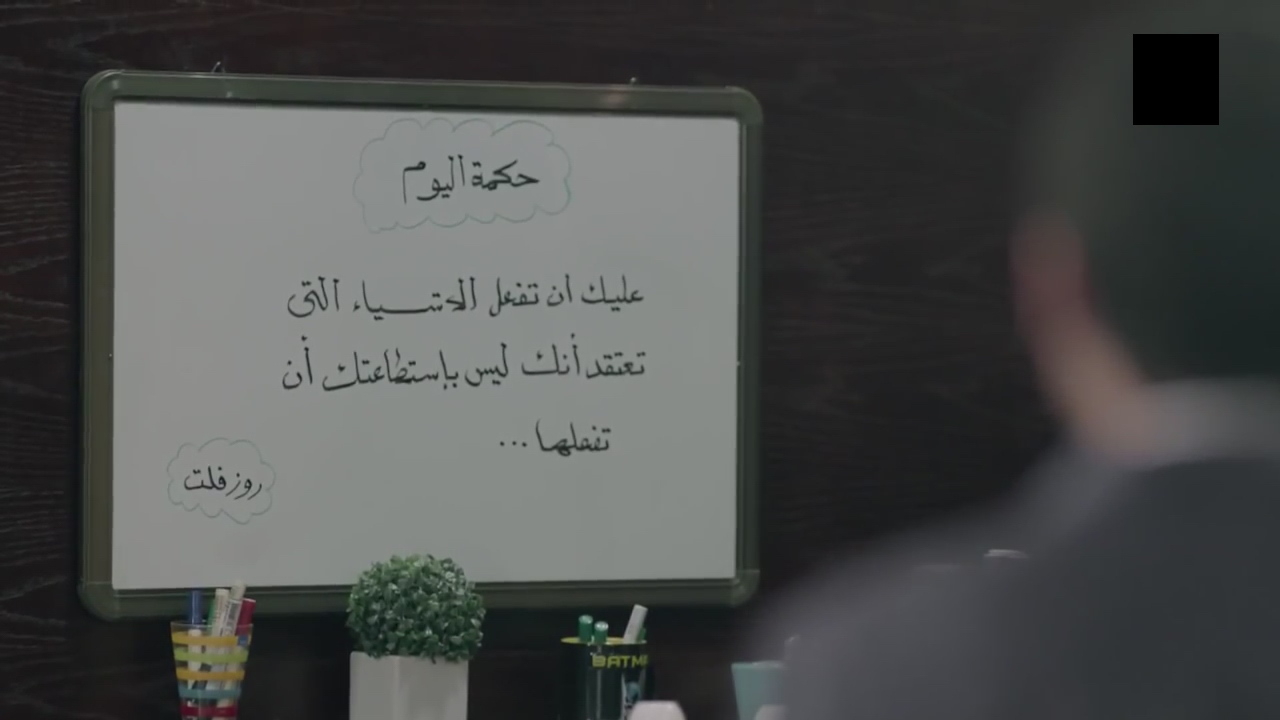 حكمة اليوم
عليك أن تفعل الاشياء التى
تعتقد أنك ليس بإستطاعتك أن
تفعلها ...
روزفلت
BATM